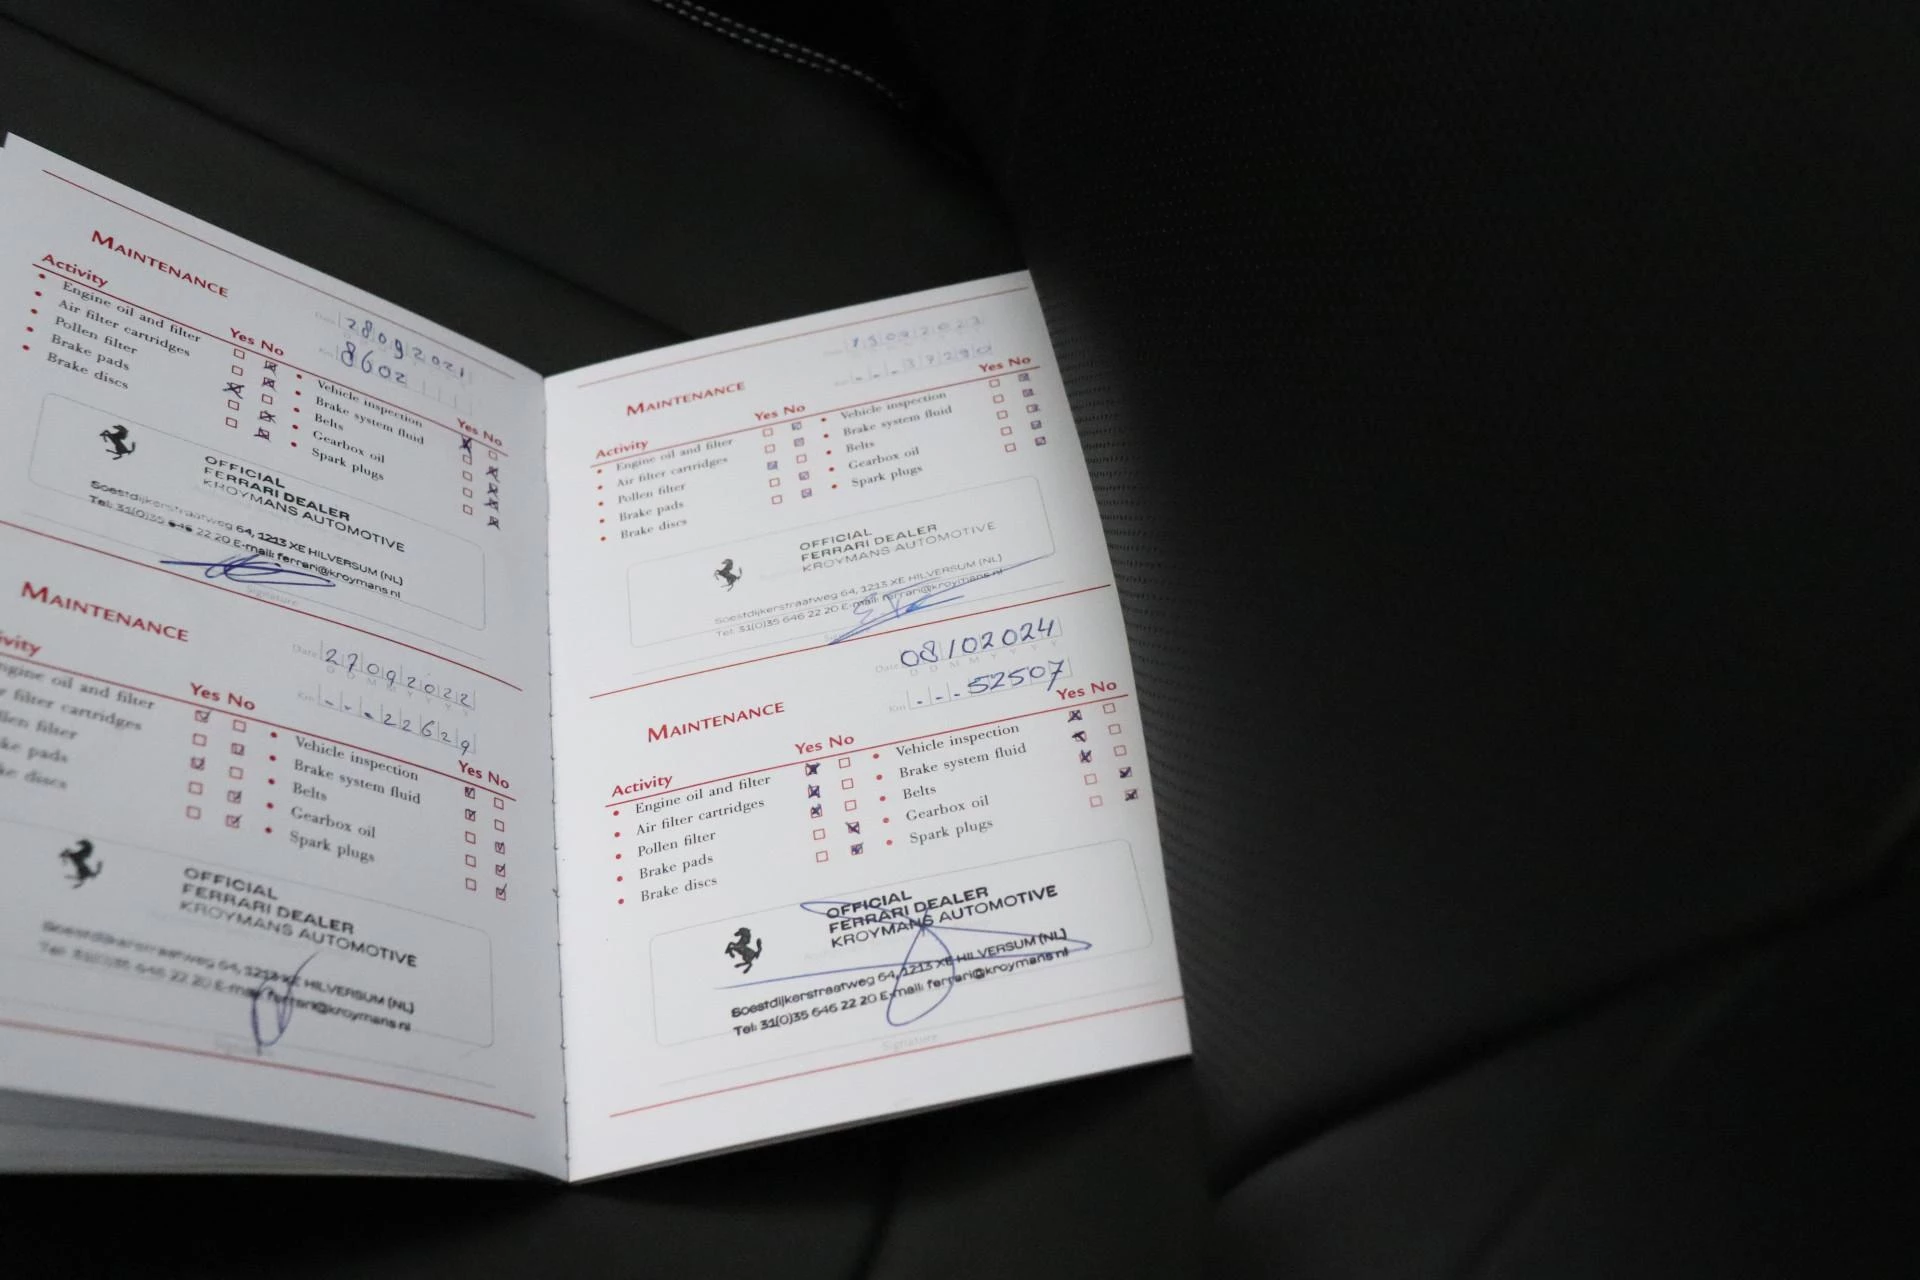 MAINTENANCE
Date 28092021
Km 8602
Activity
Yes No
Engine oil and filter
Air filter cartridges
Pollen filter
Brake pads
Brake discs
Yes No
Vehicle inspection
Brake system fluid
Belts
Gearbox oil
Spark plugs
OFFICIAL
FERRARI DEALER
KROYMANS AUTOMOTIVE
Soestdijkerstraatweg 64, 1213 XE HILVERSUM (NL)
Tel: 31(0)35 646 22 20 E-mail: ferrari@kroymans.nl
Signature
MAINTENANCE
Date 27092022
D D M M Y Y Y Y
Km ---22629
ivity
Yes No
ngine oil and filter
r filter cartridges
llen filter
ke pads
ke discs
Yes No
Vehicle inspection
Brake system fluid
Belts
Gearbox oil
Spark plugs
OFFICIAL
FERRARI DEALER
KROYMANS AUTOMOTIVE
Soestdijkerstraatweg 64, 1213 XE HILVERSUM (NL)
Tel: 31(0)35 646 22 20 E-mail: ferrari@kroymans.nl
MAINTENANCE
15092023
---37290
Activity
Yes No
Engine oil and filter
Air filter cartridges
Pollen filter
Brake pads
Brake discs
Yes No
Vehicle inspection
Brake system fluid
Belts
Gearbox oil
Spark plugs
OFFICIAL
FERRARI DEALER
KROYMANS AUTOMOTIVE
Soestdijkerstraatweg 64, 1213 XE HILVERSUM (NL)
Tel: 31(0)35 646 22 20 E-mail: ferrari@kroymans.nl
MAINTENANCE
Date 08/02024
D D M M Y Y Y Y
Km ---52507
Activity
Yes No
Engine oil and filter
Air filter cartridges
Pollen filter
Brake pads
Brake discs
Yes No
Vehicle inspection
Brake system fluid
Belts
Gearbox oil
Spark plugs
OFFICIAL
FERRARI DEALER
KROYMANS AUTOMOTIVE
Soestdijkerstraatweg 64, 1213 XE HILVERSUM (NL)
Tel: 31(0)35 646 22 20 E-mail: ferrari@kroymans.nl
Signature